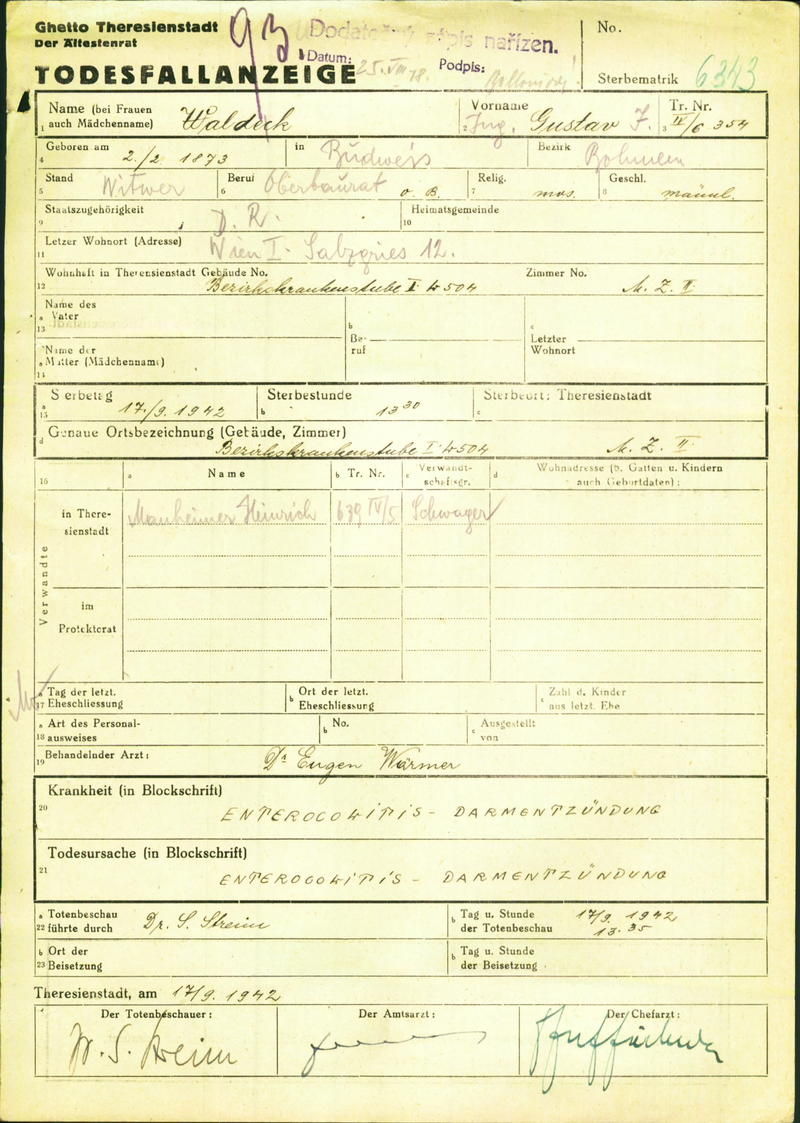 Ghetto Theresienstadt
Der Ältestenrat
TODESFALLANZEIGE
93
Dodatečný zápis nařízen.
Datum: 25. VIII. 48. Podpis:
No.
Sterbematrik 6343
Name (bei Frauen
1 auch Mädchenname) Waldeck
Vorname
2 Ing. Gustav I.
Tr. Nr.
3 IV/6 354
Geboren am
4 2./2 1873
in Budweis
Bezirk Böhmen
Stand
5 Witwer
Beruf
6 Oberbaurat a. B.
Relig.
7 mos.
Geschl.
8 männl.
Staatszugehörigkeit
9 D. R.
Heimatsgemeinde
10
Letzer Wohnort (Adresse)
11 Wien I. Salzgries 12.
Wohnhaft in Theresienstadt Gebäude No.
12 Bezirkskrankenstube I L504
Zimmer No.
M. Z. II
Name des
a Vater
13
b
Be-
ruf
c
Letzter
Wohnort
Name der
a Mutter (Mädchenname)
14
Sterbetag
a 15 17./9. 1942
Sterbestunde
b 13 30
Sterbeort: Theresienstadt
c
d Genaue Ortsbezeichnung (Gebäude, Zimmer)
Bezirkskrankenstube I L504 M. Z. II
16 a Name b Tr. Nr. c Verwandt-
schaftsgr. d Wohnadresse (b. Gatten u. Kindern
auch Geburtdaten):
Verwandte
in There-
sienstadt
Manheimer Heinrich 639 IV/5 Schwager
im
Protektorat
a Tag der letzt.
17 Eheschliessung
b Ort der letzt.
Eheschliessung
c Zahl d. Kinder
aus letzt. Ehe
a Art des Personal-
18 ausweises
b No.
c Ausgestellt
von
19 Behandelnder Arzt: Dr Eugen Wärmer
Krankheit (in Blockschrift)
20 ENTEROCOLITIS - DARMENTZÜNDUNG
Todesursache (in Blockschrift)
21 ENTEROCOLITIS - DARMENTZÜNDUNG
a Totenbeschau
22 führte durch Dr. S. Streim
b Tag u. Stunde
der Totenbeschau 17/9. 1942
13.35
b Ort der
23 Beisetzung
b Tag u. Stunde
der Beisetzung
Theresienstadt, am 17/9. 1942
Der Totenbeschauer:
Der Amtsarzt:
Der Chefarzt: